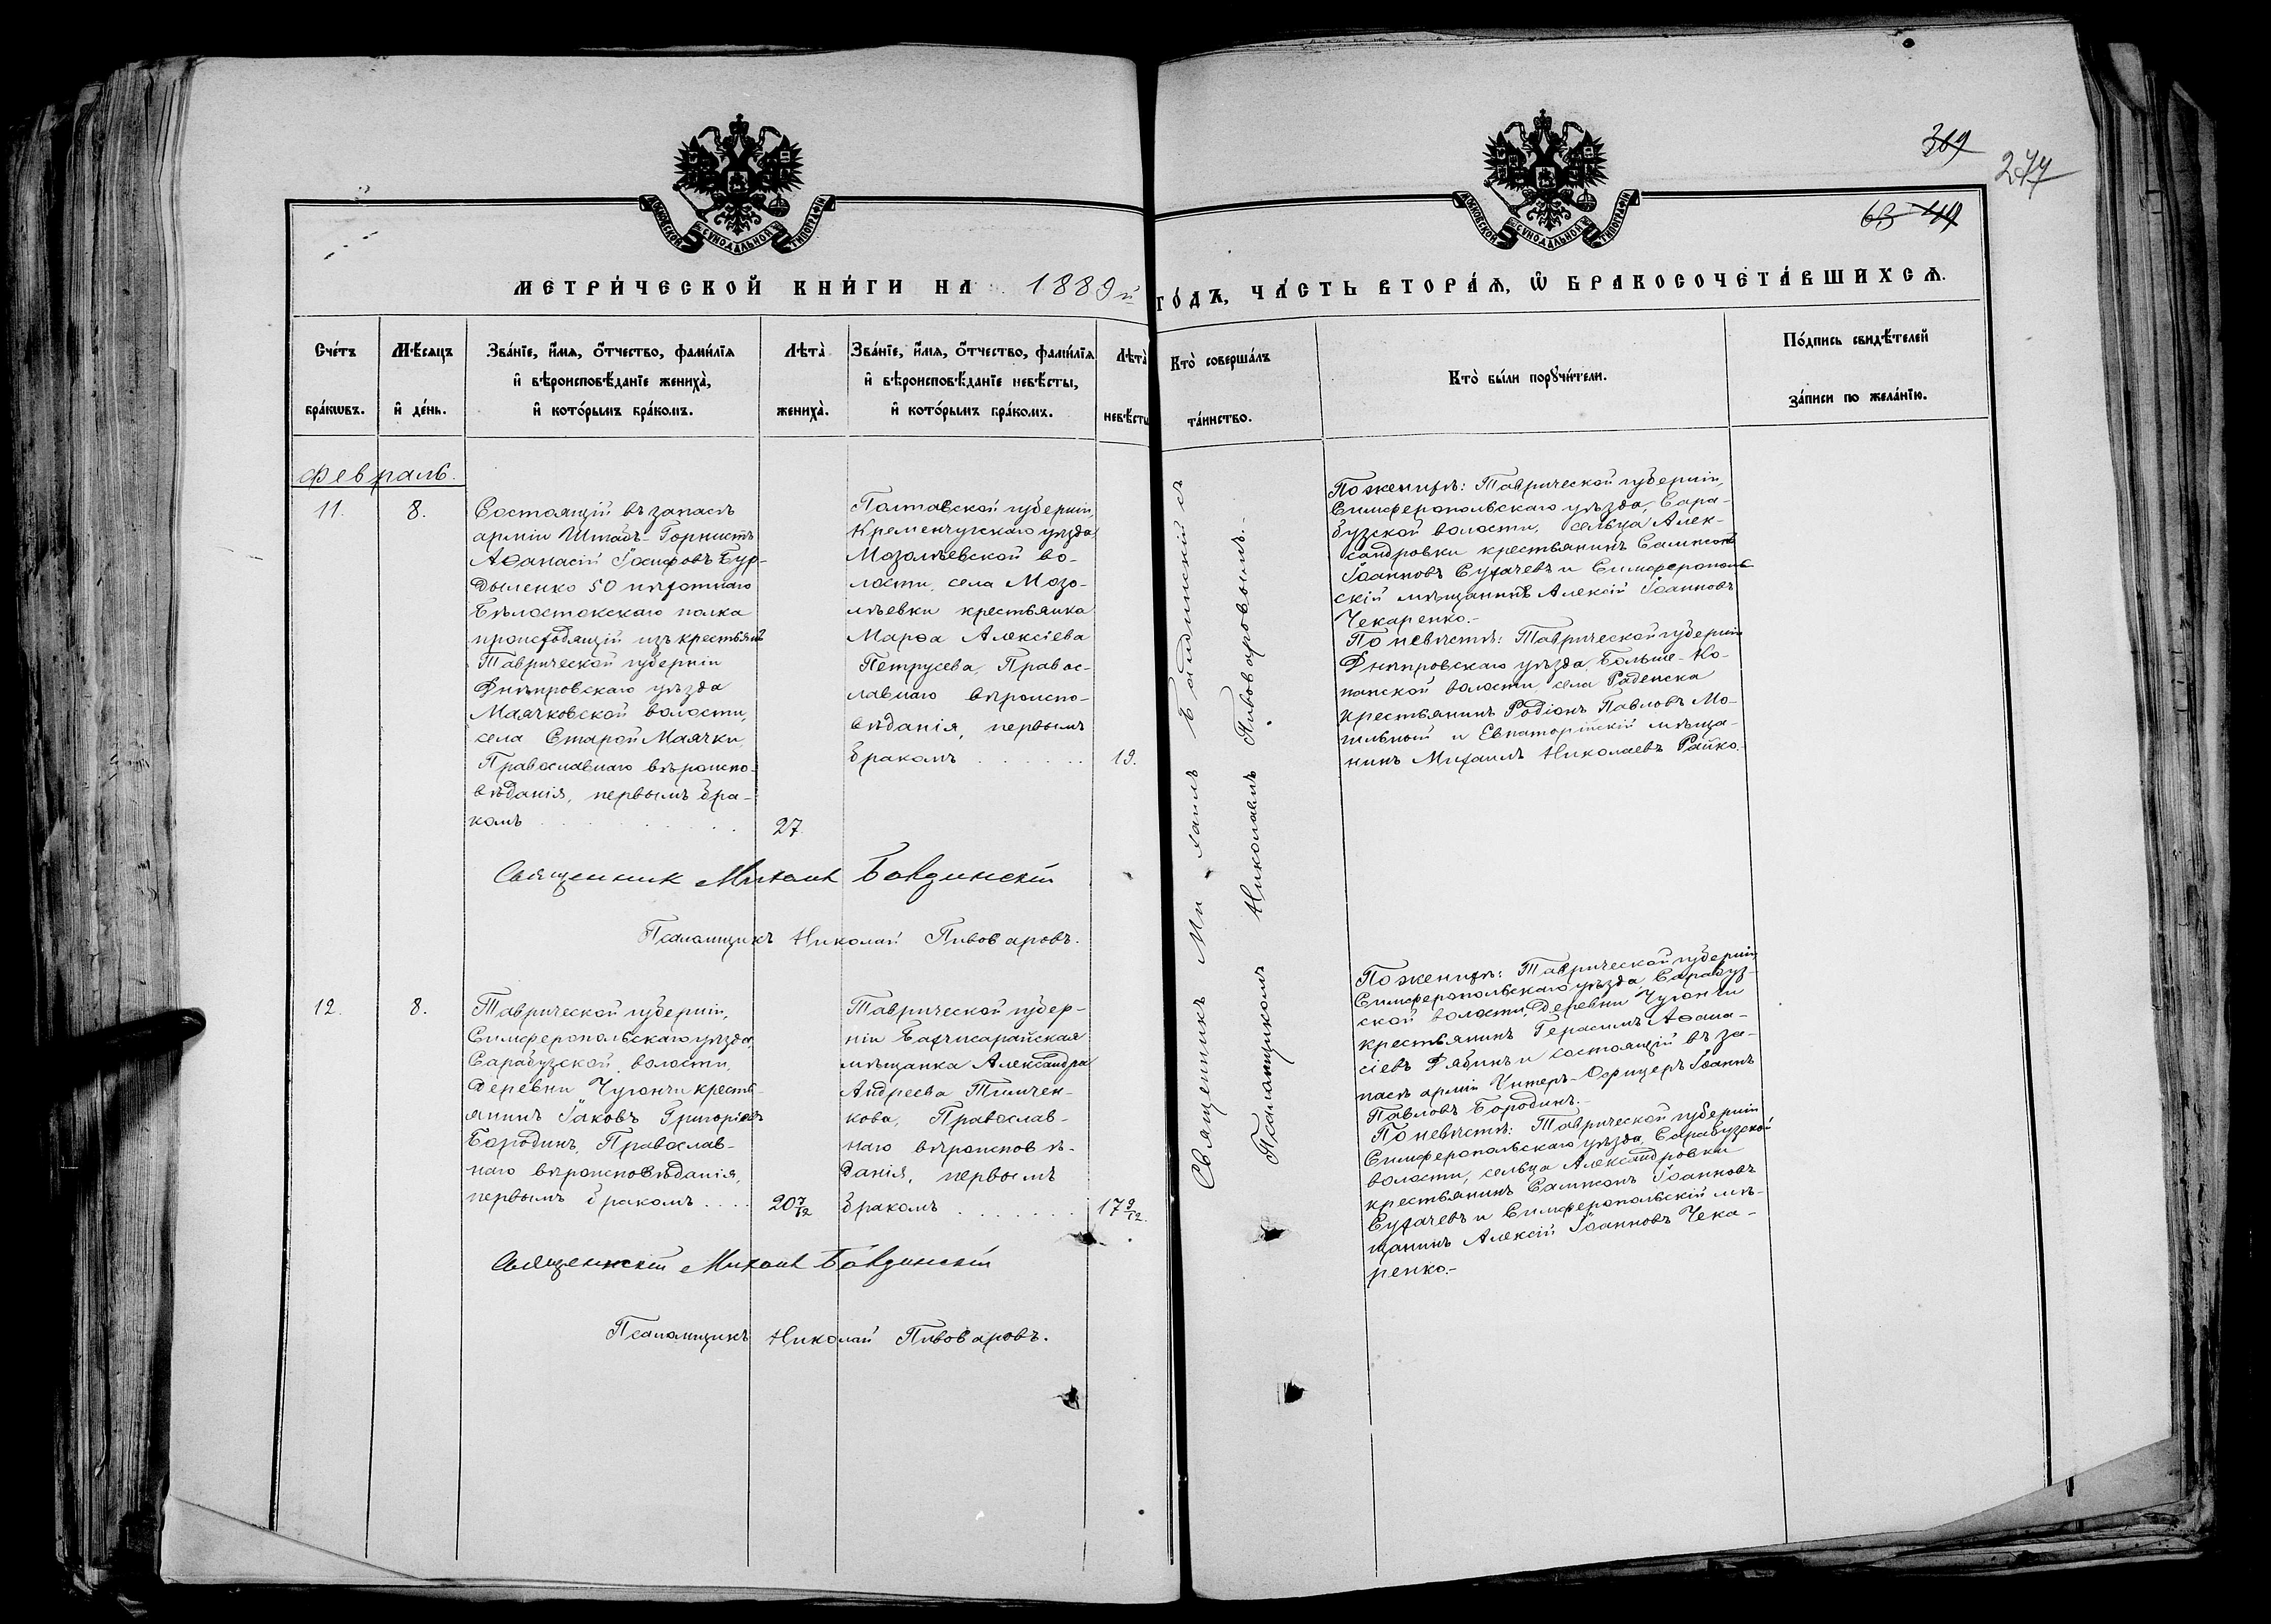 369
277
МОСКОВСКОЙ СѴНОДАЛЬНОЙ ТИПОГРАФІИ
МОСКОВСКОЙ СѴНОДАЛЬНОЙ ТИПОГРАФІИ
МЕТРИ́ЧЕСКОЙ КНИ́ГИ НА 1889й ГО́ДЪ, ЧА́СТЬ ВТОРА́Ѧ, Ѿ БРАКОСОЧЕТА́ВШИХСѦ.
Сче́тъ бра́кѡвъ.
Мѣ́сяцъ и҆ де́нь.
Зва́нїе, и҆́мѧ, ѻ҆́тчество, фами́лїѧ
и҆ вѣроисповѣ́данїе жениха̀,
и҆ кото́рымъ бра́комъ.
Лѣта̀ жениха̀.
Зва́нїе, и҆́мѧ, ѻ҆́тчество, фами́лїѧ
и҆ вѣроисповѣ́данїе невѣ́сты,
и҆ кото́рымъ бра́комъ.
Лѣта̀ невѣ́сты
Кто̀ соверша́лъ
та́инство.
Кто̀ бы́ли порꙋчи́тели.
По́дпись свидѣ́телей
за́писи по жела́нїю.
Февраль.
11.
8.
Состоящій въ запасѣ
арміи Штабъ-Горнистъ
Аѳанасій Іосифовъ Бур-
дыленко 50 пѣхотнаго
Бѣлостокскаго полка
происходящій изъ крестьянъ
Таврической губерніи
Днѣпровскаго уѣзда
Маячковской волости,
села Старой Маячки,
Православнаго вѣроиспо-
вѣданія, первымъ бра-
комъ
27.
Полтавской губерніи,
Кременчугскаго уѣзда
Мозолѣевской во-
лости, села Мозо-
лѣевки крестьянка
Марѳа Алексіева
Петрусева, Правос-
лавнаго вѣроиспо-
вѣданія, первымъ
бракомъ
19.
Священникъ Михаилъ Бавдинскій съ
Псаломщикомъ Николаемъ Пивоваровымъ.-
По женихѣ: Таврической губерніи,
Симферопольскаго уѣзда, Сара-
бузской волости, сельца Алек-
сандровки крестьянинъ Сампсонъ
Іоанновъ Сухачевъ и Симферополь
скій мѣщанинъ Алексій Іоанновъ
Чекаренко.-
По невѣстѣ: Таврической губерніи
Днѣпровскаго уѣзда, Больше-Ко-
панской волости, села Раденска
крестьянинъ Родіонъ Павловъ Мо-
гильный и Евпаторійскій мѣща-
нинъ Михаилъ Николаевъ Райко.-
Священник Михаил Бавдинскій
Псаломщикъ Николай Пивоваровъ.
12.
8.
Таврической губерніи,
Симферопольскаго уѣзда,
Сарабузской волости,
деревни Чугончи кресть-
янинъ Іаковъ Григоріевъ
Бородинъ, Православ-
наго вѣроисповѣданія,
первымъ бракомъ
20 7/12
Таврической губер-
ніи Бахчисарайская
мѣщанка Александра
Андреева Тимчен-
кова, Православ-
наго вѣроисповѣ-
данія, первымъ
бракомъ
17 9/12.
По женихѣ: Таврической губерніи,
Симферопольскаго уѣзда, Сарабуз-
ской волости, деревни Чугончи
крестьянинъ Герасимъ Аѳана-
сіевъ Рябинъ и состоящій въ за-
пасѣ арміи Унтеръ-Офицеръ Іоаннъ
Павловъ Бородинъ.-
По невѣстѣ: Таврической губерніи
Симферопольскаго уѣзда, Сарабузской
волости, сельца Александровки
крестьянинъ Сампсонъ Іоанновъ
Сухачевъ и Симферопольскій мѣ-
щанинъ Алексій Іоанновъ Чека-
ренко.-
Священскій Михаил Бавдинскій
Псаломщикъ Николай Пивоваровъ.